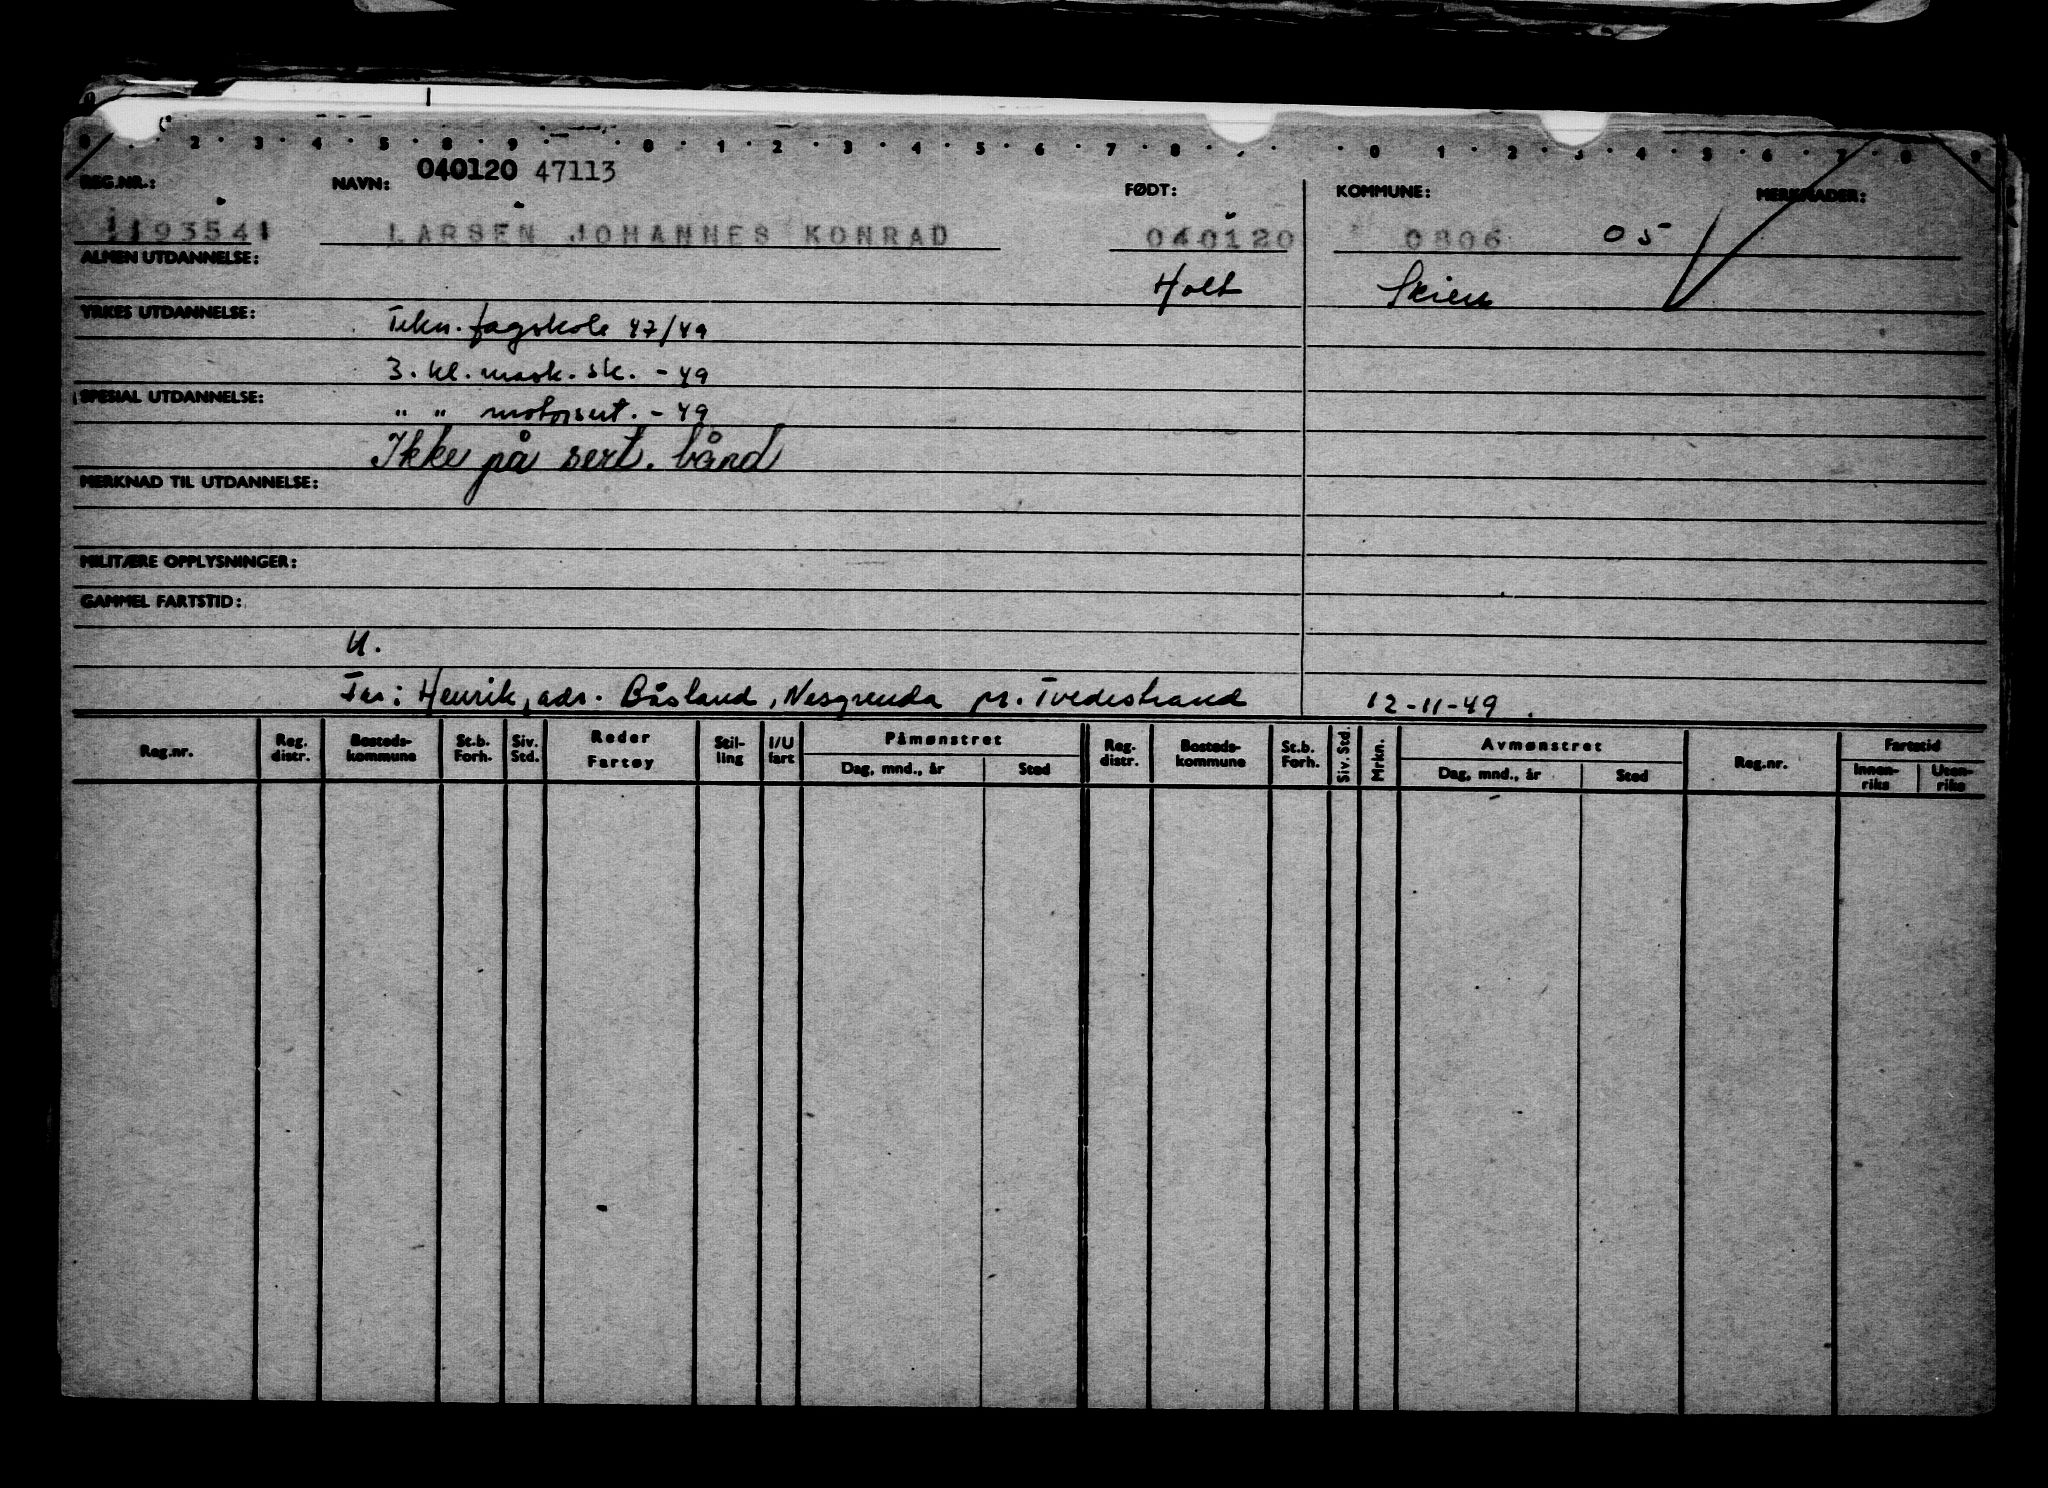 040120 47113
REG.NR.: NAVN: FØDT: KOMMUNE: MERKNADER:
1193541 LARSEN JOHANNES KONRAD 040120 0806 05
ALMEN UTDANNELSE: Holt Skien
YRKES UTDANNELSE: Tekn. fagskole 47/49
3. kl. mask. sk. - 49
SPESIAL UTDANNELSE: " " motorsert. - 49
Ikke på sert. bånd
MERKNAD TIL UTDANNELSE:
MILITÆRE OPPLYSNINGER:
GAMMEL FARTSTID:
U.
Far: Henrik, adr. Båsland, Nesgrenda pr. Tvedestrand 12-11-49
Reg.nr. Reg. distr. Bosteds-kommune St.b. Forh. Siv. Std. Reder Fartøy Stil-ling I/U fart Påmønstret Dag, mnd., år Sted Reg. distr. Bosteds-kommune St.b. Forh. Siv. Std. Mrkn. Avmønstret Dag, mnd., år Sted Reg.nr. Fartstid Innen-riks Uten-riks